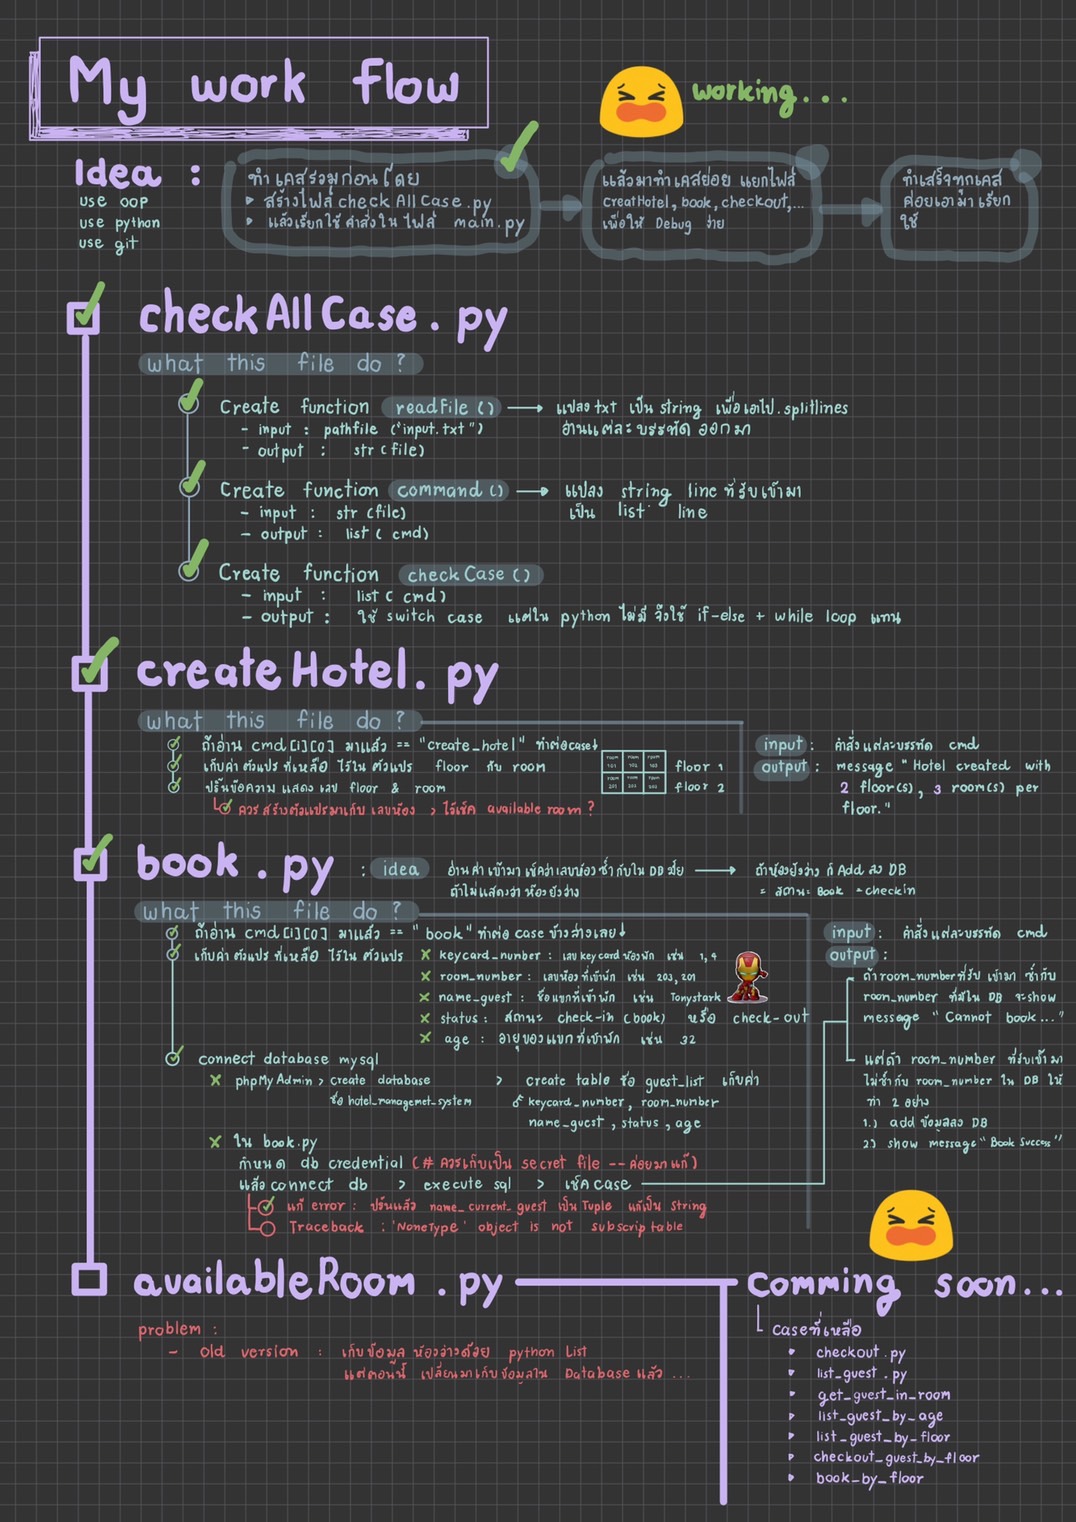 My work flow
working...
Idea :
use OOP
use python
use git
ทำเคสรวมก่อนโดย
สร้างไฟล์ checkAllCase.py
แล้วเรียกใช้ คำสั่งใน ไฟล์ main.py
แล้วมาทำเคสย่อย แยกไฟล์
creatHotel, book, checkout,...
เพื่อให้ Debug ง่าย
ทำเสร็จทุกเคส
ค่อยเอามาเรียก
ใช้
checkAllCase.py
what this file do ?
Create function readFile () → แปลง txt เป็น string เพื่อเอาไป .splitlines
- input : pathfile ("input.txt") อ่านแต่ละบรรทัด ออกมา
- output : str (file)
Create function command () → แปลง string line ที่รับเข้ามา
- input : str (file) เป็น list line
- output : list ( cmd)
Create function checkCase ()
- input : list ( cmd)
- output : ใช้ switch case แต่ใน python ไม่มี จึงใช้ if-else + while loop แทน
createHotel.py
what this file do ?
ถ้าอ่าน cmd[i][0] มาแล้ว == "create_hotel" ทำต่อcase↓
เก็บค่าตัวแปรที่เหลือ ไว้ใน ตัวแปร floor กับ room
ปริ้นข้อความ แสดง เลข floor & room
ควร สร้างตัวแปรมาเก็บ เลขห้อง > ไว้เช็ค available room ?
room 101 room 102 room 103 floor 1
room 201 room 202 room 203 floor 2
input : คำสั่งแต่ละบรรทัด cmd
output : message "Hotel created with
2 floor(s), 3 room(s) per
floor."
book.py : idea อ่านค่าเข้ามา เช็คว่าเลขห้องซ้ำกับใน DB มั้ย → ถ้าห้องยังว่าง ก็ Add ลง DB
ถ้าไม่แสดงว่า ห้องยังว่าง = สถานะ Book = checkin
what this file do ?
ถ้าอ่าน cmd[i][0] มาแล้ว == "book" ทำต่อ case ข้างล่างเลย↓
เก็บค่าตัวแปรที่เหลือ ไว้ใน ตัวแปร
x keycard_number : เลข keycard ห้องพัก เช่น 1,4
x room_number : เลขห้องที่เข้าพัก เช่น 203,201
x name_guest : ชื่อแขกที่เข้าพัก เช่น Tonystark
x status : สถานะ check-in (book) หรือ check-out
x age : อายุของแขกที่เข้าพัก เช่น 32
connect database mysql
x phpMyAdmin > create database > create table ชื่อ guest_list เก็บค่า
ชื่อ hotel_managemet_system keycard_number, room_number
name_guest, status, age
x ใน book.py
กำหนด db credential (# ควรเก็บเป็น secret file -- ค่อยมาแก้)
แล้ว connect db > execute sql > เช็ค case
แก้ error : ปริ้นแล้ว name_current_guest เป็น Tuple แก้เป็น String
Traceback : 'NoneType' object is not subscriptable
input : คำสั่งแต่ละบรรทัด cmd
output :
ถ้า room_number ที่รับเข้ามา ซ้ำกับ
room_number ที่มีใน DB จะ show
message "Cannot book..."
แต่ถ้า room_number ที่รับเข้ามา
ไม่ซ้ำกับ room_number ใน DB ให้
ทำ 2 อย่าง
1.) add ข้อมูลลง DB
2.) show message "Book Success"
availableRoom.py
problem :
- old version : เก็บข้อมูล ห้องว่างด้วย python List
แต่ตอนนี้ เปลี่ยนมาเก็บข้อมูลใน Database แล้ว ...
Comming soon...
case ที่เหลือ
checkout.py
list_guest.py
get_guest_in_room
list_guest_by_age
list_guest_by_floor
checkout_guest_by_floor
book_by_floor